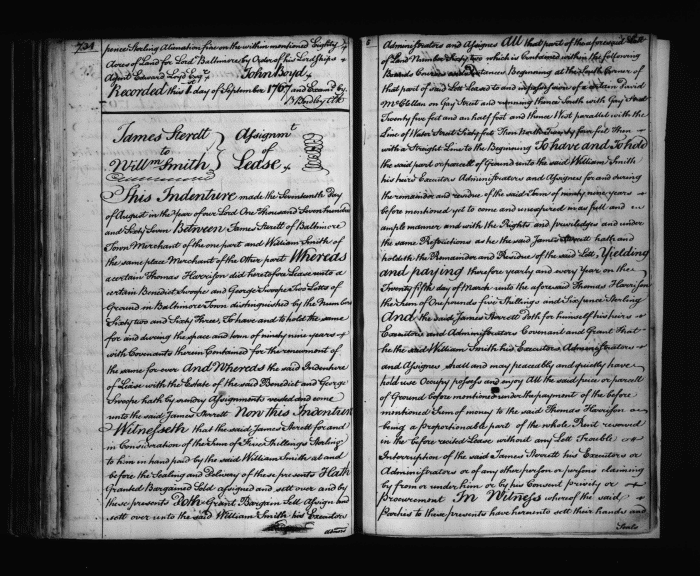 734
pence Sterling Alienation fine on the within mentioned Eighty
Acres of Land for Lord Baltimore by Order of his Lordships
Agent Edward Loyd Esqr
John Boyd
Recorded this 1st day of September 1767 and Examd by
B Dudley Clk
James Sterett
to
Willm Smith
Assignmt
of
Lease
This Indenture made the Seventeenth Day
of August in the Year of our Lord One Thousand Seven hundred
and Sixty Seven Between James Sterett of Baltimore
Town Merchant of the one part and William Smith of
the same place Merchant of the Other part Whereas
a certain Thomas Harrison did heretofore Lease unto a
certain Benedict Swoope and George Swoope Two Lotts of
Ground in Baltimore Town distinguished by the Numbers
Sixty two and Sixty Three, To have and to hold the same
for and during the space and term of ninety nine years
with Covenants therein Contained for the renewment of
the same for ever And Whereas the said Indenture
of Lease with the Estate of the said Benedict and George
Swoope hath by sundry Assignments vested and come
unto the said James Sterett Now this Indenture
Witnesseth that the said James Sterett for and
in Consideration of the Sum of Five Shillings Sterling
to him in hand paid by the said William Smith at and
before the Sealing and Delivery of these presents Hath
Granted Bargained Sold assigned and sett over and by
these presents Doth Grant Bargain Sell Assign and
sett over unto the said William Smith his Executors
Administrators and Assigns All that part of the aforesaid Lott
of Land Number Sixty two which is Contained within the following
Bounds Courses and Distances Beginning at the South Corner of
that part of said Lott Leased to and in possession of a certain David
McClellan on Gay Street and running thence South with Gay Street
Twenty five feet and an half foot and thence West parallel with the
Line of Water Street Sixty feet Then North Twenty five feet Then
with a Straight Line to the Beginning To have and To hold
the said part or parcell of Ground unto the said William Smith
his heirs Executors Administrators and Assigns for and during
the remainder and residue of the said Term of ninety nine years
before mentioned yet to come and unexpired in as full and
ample manner and with the Rights and priviledges and under
the same Restrictions as he the said James Sterett hath and
holdeth the Remainder and Residue of the said Lott, Yielding
and paying therefore yearly and every Year on the
Twenty fifth day of March unto the aforesaid Thomas Harrison
the Sum of One pounds five Shillings and Sixpence Sterling
And the said James Sterett Doth for himself his heirs
Executors and Administrators Covenant and Grant that
he the said William Smith his Executors Administrators
and Assigns shall and may peaceably and quietly have
hold use Occupy possess and enjoy All the said piece or parcell
of Ground before mentioned under the payment of the before
mentioned Sum of money to the said Thomas Harrison as
being a proportionable part of the whole Rent reserved
in the before recited Lease without any Lett Trouble or
Interruption of the said James Sterett his Executors or
Administrators or of any other person or persons claiming
by from or under him or by his Consent privity or
procurement In Witness whereof the said
Parties to these presents have hereunto sett their hands and
Seals